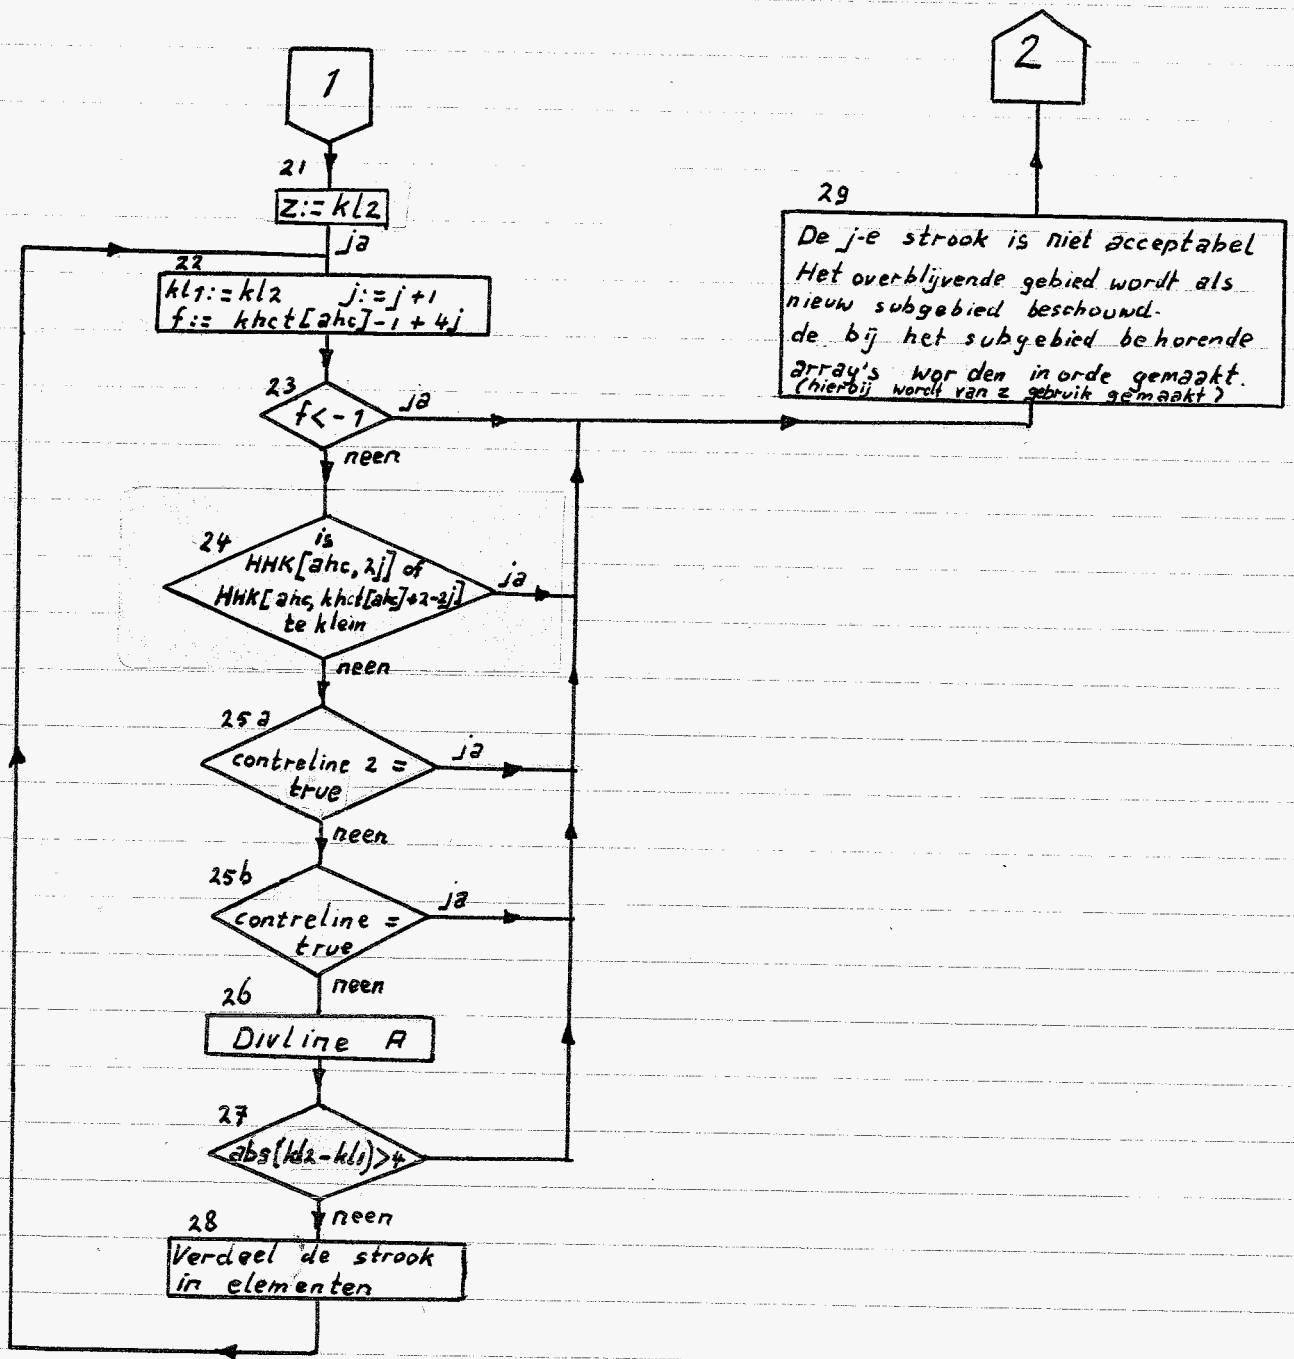 1
21
z:= kl2
ja
22
kl1:= kl2 j:= j+1
f:= khct[ahc]-1 + 4j
23
f < -1
ja
neen
24
is
HHK[ahc, 2j] of
HHK[ahc, khct[ahc]+2-2j]
te klein
ja
neen
25a
contreline 2 =
true
ja
neen
25b
contreline =
true
ja
neen
26
Divline A
27
abs(kl2-kl1)>4
neen
28
Verdeel de strook
in elementen
2
29
De j-e strook is niet acceptabel
Het overblijvende gebied wordt als
nieuw subgebied beschouwd.
de bij het subgebied behorende
array's worden in orde gemaakt.
(hierbij wordt van z gebruik gemaakt)